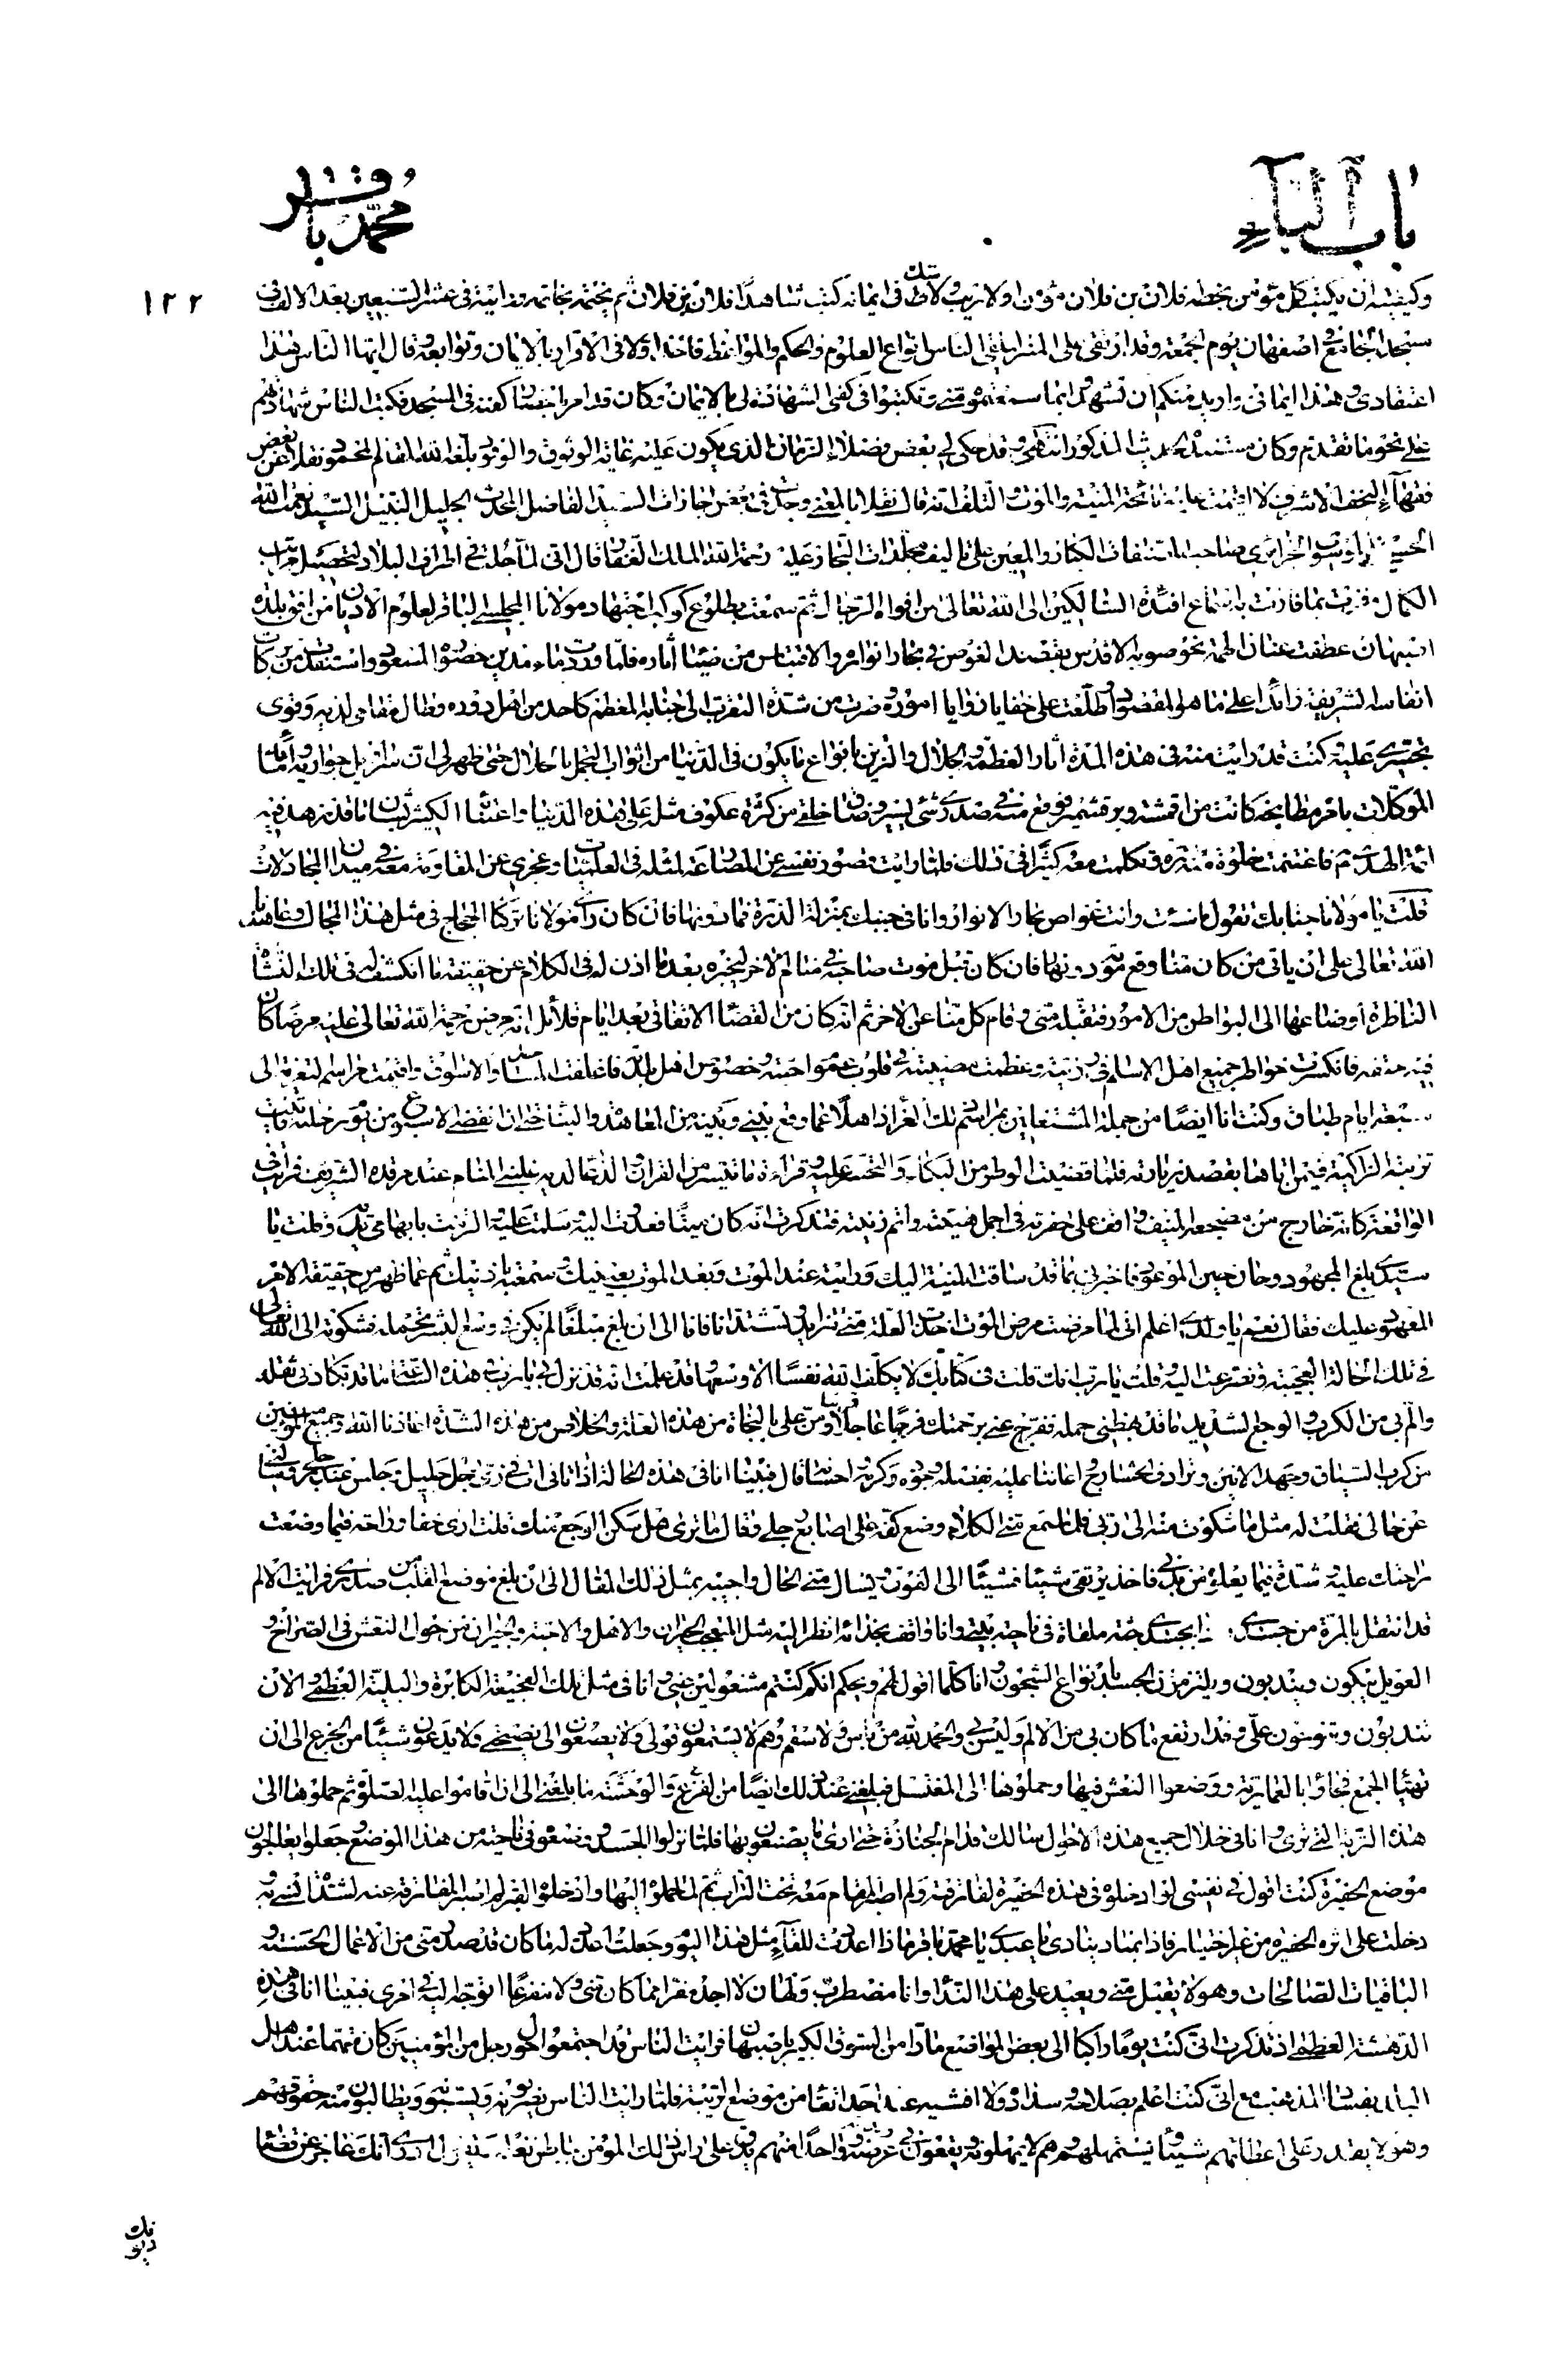 باب الباء
محمد باقر
١٢٢
وكيفيته ان يكتب كل مؤمن بخطه فلان بن فلان مؤمن ولا ريب ولا شك في ايمانه كتب شاهدا فلان بن فلان ثم يختمه بخاتمه ورايته في عشر السبعين بعد الالف في
مسجد الجامع اصفهان يوم الجمعة وقد ارتقى على المنبر ليلقي الناس انواع العلوم والحكم والمواعظ فاخذ اولا في الاقرار بالايمان وتوابعه وقال ايها الناس هذا
اعتقادي وهذا ايماني واريد منكم ان تشهدوا بما سمعتموه مني وتكتبوا في كفني الشهادة لي بالايمان وكان قد امر باحضار كفنه في المسجد فكتب الناس شهادتهم
على نحو ما تقدم وكان مستنده الحديث المذكور انتهى وقد حكى لي بعض فضلاء الزمان الذي يكون عليه غاية الوثوق والوقوف بلغه الله المقام المحمود نقلا عن بعض
فقهاء النجف الاشرف لا اقيمت عليه نائحة المنية والموت والتلف انه قال نقلا بالمعنى وجدت في بعض اجازات السيد الفاضل المحدث الجليل النبيل السيد نعمة الله
الحسيني الجزائري صاحب المعين على تاليف مجلدات البحار عليه رحمة الله الملك الغفار قال اني لما جلت في اطراف البلاد لتحصيل مراتب
الكمال باستماع افئدة السالكين الى الله تعالى من افواه الرجال ثم سمعت بطلوع كوكب اجتهاد مولانا المجلسي الباقر لعلوم الاديان من افق بلدة
اصبهان عطفت عنان الهمة نحو صوبه الاقدس بقصد الغوص في بحار انواره والاقتباس من ضياء آثاره فلما وردت ماء مدين حضوره المسعود واستفدت من بركات
انفاسه الشريفة زائدا على ما هو المقصود واطلعت على خفايا زوايا اموره صرت من شدة التقرب الى جنابه المعظم كاحد من اهل دوره وطال مقامي لديه وقوي
تجسري عليه كنت قد رايت منه في هذه المدة آثار العظمة والجلال والتزين بانواع ما يكون في الدنيا من اثواب التجمل بالحلال حتى ظهر لي ان سراويل جواريه واماء
الموكلات بامر مطابخه كانت من اقمشة فوقع منه في صدري شيء يسير وضاق خلقي من كثرة عكوف مثله على هذه الدنيا واعتنائه الكثير بشان ما قد زهد فيه
ائمة الهدى ثم فاغتنمت خلوة منتزه وتكلمت معه كثيرا في ذلك فلما رايت قصور نفسي عن المصارعة لمثله في العلميات وعجزي عن المقاومة معه في ميدان المجادلات
قلت يا مولانا جنابك تقول ما شئت وانت غواص بحار الانوار وانا في جنبك بمنزلة الذرة فما دونها فان كان راي مولانا تركنا الحجاج في مثل هذا المجال وعاهدنا
الله تعالى على ان ياتي من كان منا وقع موته دونها فان كان قبل موت صاحبه في منام الآخر ليخبره بعد ما اذن له في الكلام عن حقيقة ما انكشف له في تلك النشاة
الناظرة اوضاعها الى البواطن من الامور فتقبله مني وقام كل منا عن الآخر ثم انه كان من القضاء الاتفاقي بعد ايام قلائل انه مرض رحمة الله تعالى عليه مرضا كان
فيه حتفه فانكسرت خواطر جميع اهل الاسلام وعظمت مصيبته في قلوب عموم احبته وخصوص اهل بلده فاغلقت المساجد والاسواق واقيمت مراسم التعزية الى
سبعة ايام طباق وكنت انا ايضا من جملة المشتغلين بمراسم تلك العزاء ذاهلا عما وقع بيني وبينه من المعاهدة والبناء حتى ان انقضى الاسبوع من يوم رحلته فاتيت
تربته الزاكية فيمن اتاها بقصد زيارته فلما قضيت الوطر من البكاء والنحيب عليه وقراءة ما تيسر من القرآن والدعاء لديه غلبني المنام عند مرقده الشريف فرايته في
الواقعة كانه خارج من مضجعه المنيف واقف على حفرته في اجمل هيئته واتم زينته فتذكرت انه كان ميتا فعدوت اليه سلمت عليه وقلت يا
سيدي بلغ المجهود وحان حين الموعود فاخبرني بما قد ساقت المنية اليك ورايته عند الموت وبعد الموت بعينيك وسمعته باذنيك ثم عما ظهر من حقيقة الامر
المعهود عليك فقال نعم يا ولدي اعلم اني لما مرضت مرض الموت اخذت العلة مني تتزايد وتشتد آنا فآنا الى ان بلغ مبلغا لم يكن في وسع البشر تحمله فشكوته الى الله تعالى
في تلك الحالة العجيبة وتضرعت اليه قلت يا رب انك قلت في كتابك لا يكلف الله نفسا الا وسعها وقد علمت انه قد نزل بي يا رب في هذه الساعة ما قد تكادني ثقله
والم بي من الكرب والوجع الشديد ما قد بهظني حمله ففرج عني برحمتك فرجا عاجلا قريبا ومن علي بالنجاة من هذه العلة والخلاص من هذه الشدة اعاذنا الله وجميع المؤمنين
من كرب السياق وجهد الانين وترادف الحشارج اعاننا عليه بفضله وجوده وكرمه واحسانه قال فبينا انا في هذه الحالة اذ اتاني آت في زي رجل جليل وجلس عند رجلي وسالني
عن حالي فقلت له مثل ما شكوت منه الى ربي فلما سمع مني الكلام وضع كفه على اصابع رجلي وقال ما ترى هل سكن الوجع منك قلت ارى خفا وراحة فيما وضعت
راحتك عليه وشدة فيما يعلو من بدني فاخذ يرتقي شيئا فشيئا الى الفوق ويسال مني الحال واجيبه بمثل ذلك المقال الى ان بلغ موضع القلب من صدري فرايت الالم
قد انتقل بالمرة من جسدي جثة ملقاة في ناحية بيتي وانا واقف بحذائه انظر اليه مثل المتعجب الحيران والاهل والاحبة والجيران من حول النعش في الصراخ و
العويل يبكون ويندبون ويلتزمون الجسد بانواع الشجون وانا كلما اقول لهم ويحكم انكم كنتم مشغولين عني وانا في مثل تلك الفجيعة الكابرة والبلية العظمى والآن
تندبون وتنوحون علي وقد ارتفع ما كان بي من الالم وليس بي والحمد لله من باس ولا سقم وهم لا يستمعون قولي ولا يصغون الى نصحي ولا يدعون شيئا من الجزع الى ان
تهيا الجمع فجاؤا بالعمارية ووضعوا النعش فيها وحملوها الى المغتسل فبلغني عند ذلك ايضا من الفزع والوحشة ما بلغني الى ان قاموا عليه لصلوة ثم حملوها الى
هذه التربة التي ترى وانا في خلال جميع هذه الاحوال سالك قدام الجنازة حتى ارى ما يصنعون بها فلما نزلوا الجسد ووضعوه في ناحية من هذا الموضع وجعلوا يعالجون
موضع الحفيرة كنت اقول في نفسي لو ادخلوه في هذه الحفيرة لفارقته ولم اطق المقام معه تحت التراب ثم لما حملوه اليها وادخلوه القبر لم اسر المفارقة عنه لشدة انسي به
دخلت على اثره الحفيرة من غير اختيار فاذا بمناد ينادي يا عبدي يا محمد باقر ماذا اعددت للقاء مثل هذا اليوم وجعلت اعد له ما كان قد صدر مني من الاعمال الحسنة و
الباقيات الصالحات وهو لا يقبل مني ويعيد علي هذا النداء وانا مضطرب ولهان لا اجد مفرا مما كان مني ولا مفزعا اتوجه اليه في امري فبينا انا في هذه
الدهشة العظمى اذ تذكرت اني كنت يوما راكبا الى بعض المواضع مارا من السوق الكبير باصبهان فرايت الناس قد اجتمعوا حول رجل من المؤمنين كان متهما عند اهل
البلد بفساد المذهب مع اني كنت اعلم بصلاحه وسداده ولا افشيه عند احد اتقاء من موضع الريبة فلما رايت الناس يضربونه ويسبونه ويطالبون منه حقوقهم
وهو لا يقدر على اعطائهم شيئا ويستمهلهم وهم لا يمهلونه ويقعون في عرضه واحدا منهم يدق على راس ذلك المؤمن بباطن نعله انك عاجز عن قضاء